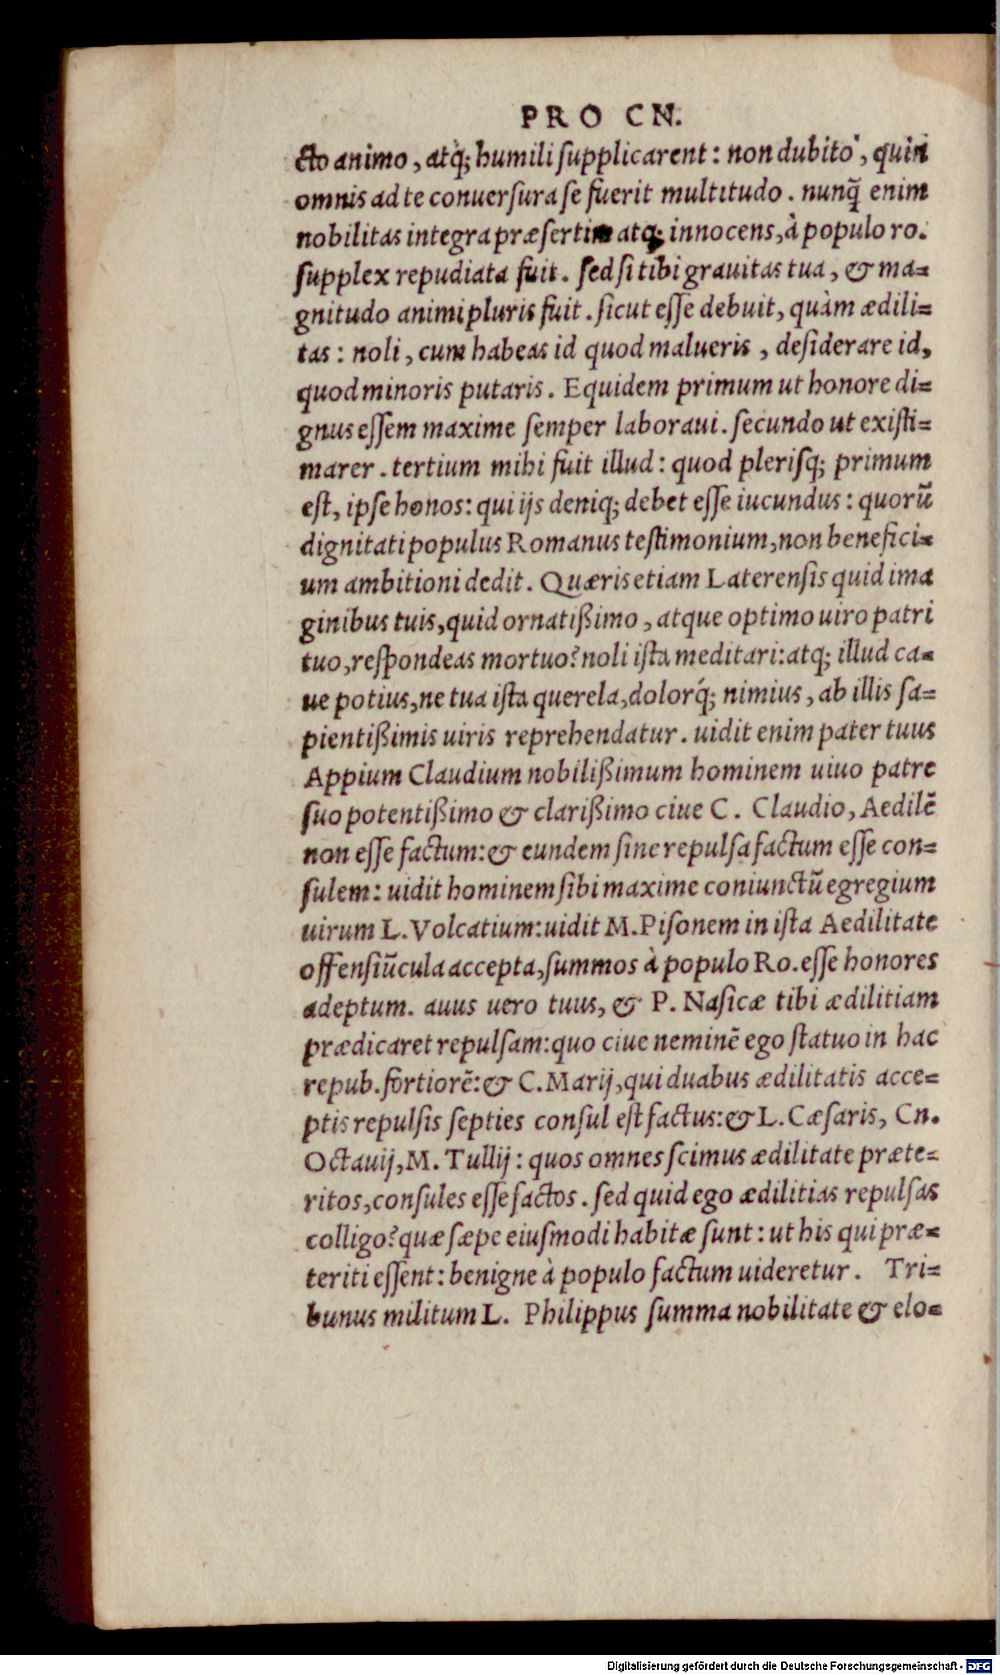 PRO CN.
cto animo, atq́; humili supplicarent: non dubito, quin
omnis ad te conuersura se fuerit multitudo. nunq̃ enim
nobilitas integra præsertim atq; innocens, à populo ro.
supplex repudiata fuit. sed si tibi grauitas tua, & ma=
gnitudo animi pluris fuit. sicut esse debuit, quàm ædili=
tas: noli, cum habeas id quod malueris, desiderare id,
quod minoris putaris. Equidem primum ut honore di=
gnus essem maxime semper laboraui. secundo ut existi=
marer. tertium mihi fuit illud: quod plerisq; primum
est, ipse honos: qui ijs deniq; debet esse iucundus: quorũ
dignitati populus Romanus testimonium, non benefici=
um ambitioni dedit. Quæris etiam Laterensis quid ima
ginibus tuis, quid ornatißimo, atque optimo uiro patri
tuo, respondeas mortuo? noli ista meditari: atq; illud ca=
ue potius, ne tua ista querela, dolorq́; nimius, ab illis sa=
pientißimis uiris reprehendatur. uidit enim pater tuus
Appium Claudium nobilißimum hominem uiuo patre
suo potentißimo & clarißimo ciue C. Claudio, Aedilẽ
non esse factum: & eundem sine repulsa factum esse con=
sulem: uidit hominem sibi maxime coniunctũ egregium
uirum L. Volcatium: uidit M. Pisonem in ista Aedilitate
offensiũcula accepta, summos à populo Ro. esse honores
adeptum. auus uero tuus, & P. Nasicæ tibi ædilitiam
prædicaret repulsam: quo ciue neminẽ ego statuo in hac
repub. fortiorẽ: & C. Marij, qui duabus ædilitatis acce=
ptis repulsis septies consul est factus: & L. Cæsaris, Cn.
Octauij, M. Tullij: quos omnes scimus ædilitate præte=
ritos, consules esse factos. sed quid ego ædilitias repulsas
colligo? quæ sæpe eiusmodi habitæ sunt: ut his qui præ=
teriti essent: benigne à populo factum uideretur. Tri=
bunus militum L. Philippus summa nobilitate & elo=
Digitalisierung gefördert durch die Deutsche Forschungsgemeinschaft - DFG